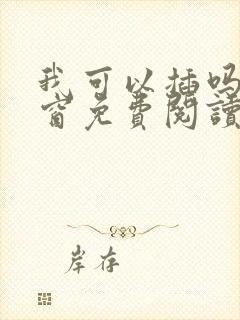 我可以插吗
窗免費閱讀
岸存